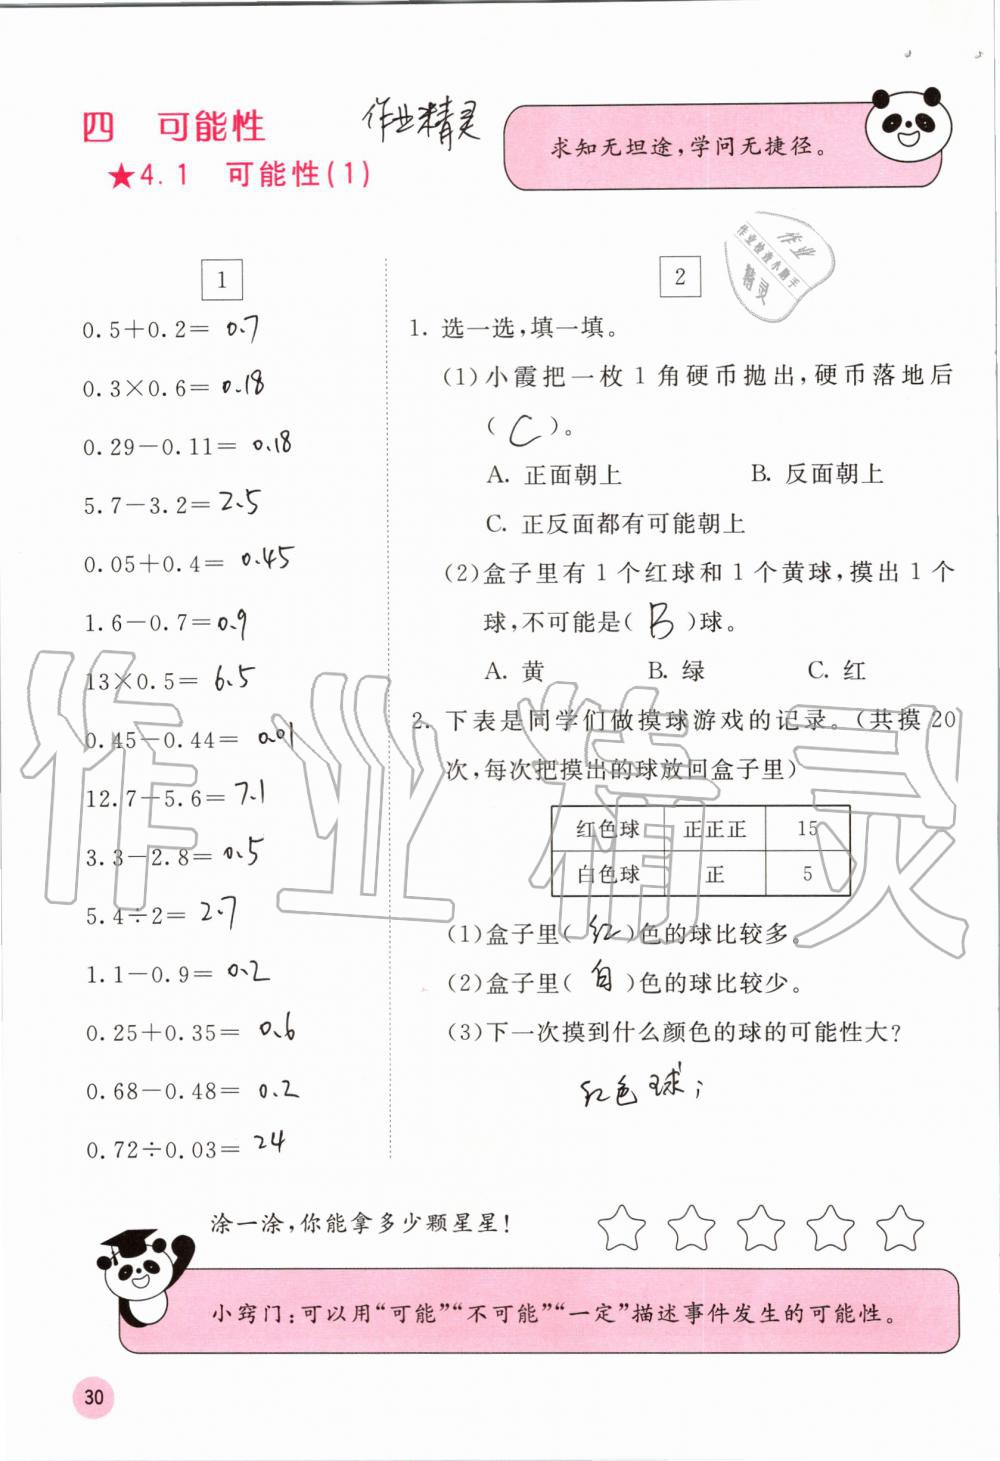 四 可能性
作业精灵
★4.1 可能性(1)
求知无坦途,学问无捷径。
作业
作业检查小助手
精灵
1
0.5+0.2= 0.7
0.3×0.6= 0.18
0.29-0.11= 0.18
5.7-3.2= 2.5
0.05+0.4= 0.45
1.6-0.7= 0.9
13×0.5= 6.5
0.45-0.44= 0.01
12.7-5.6= 7.1
3.3-2.8= 0.5
5.4÷2= 2.7
1.1-0.9= 0.2
0.25+0.35= 0.6
0.68-0.48= 0.2
0.72÷0.03= 24
2
1. 选一选,填一填。
(1)小霞把一枚1角硬币抛出,硬币落地后
( C )。
A. 正面朝上 B. 反面朝上
C. 正反面都有可能朝上
(2)盒子里有1个红球和1个黄球,摸出1个
球,不可能是( B )球。
A. 黄 B. 绿 C. 红
2. 下表是同学们做摸球游戏的记录。(共摸20
次,每次把摸出的球放回盒子里)
红色球 正正正 15
白色球 正 5
(1)盒子里( 红 )色的球比较多。
(2)盒子里( 白 )色的球比较少。
(3)下一次摸到什么颜色的球的可能性大?
红色球;
作业精灵
涂一涂,你能拿多少颗星星!
小窍门:可以用“可能”“不可能”“一定”描述事件发生的可能性。
30